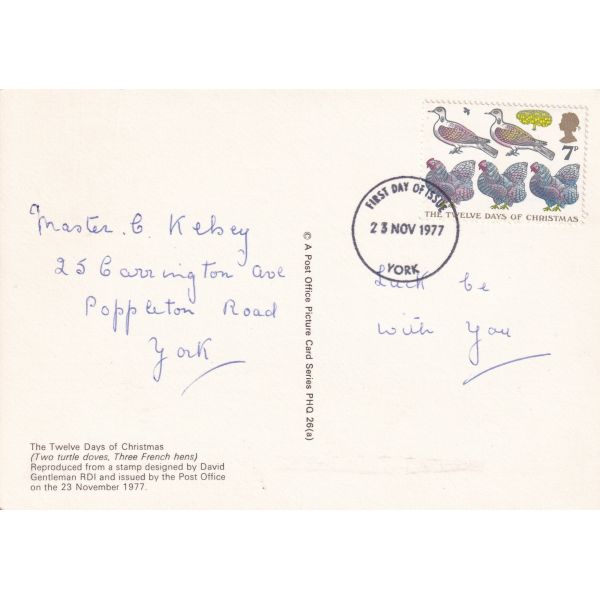 7P
THE TWELVE DAYS OF CHRISTMAS
FIRST DAY OF ISSUE
23 NOV 1977
YORK
Master. C. Kelsey
25 Carrington Ave
Poppleton Road
York
Luck be
with You
© A Post Office Picture Card Series PHQ 26(a)
The Twelve Days of Christmas
(Two turtle doves, Three French hens)
Reproduced from a stamp designed by David
Gentleman RDI and issued by the Post Office
on the 23 November 1977.